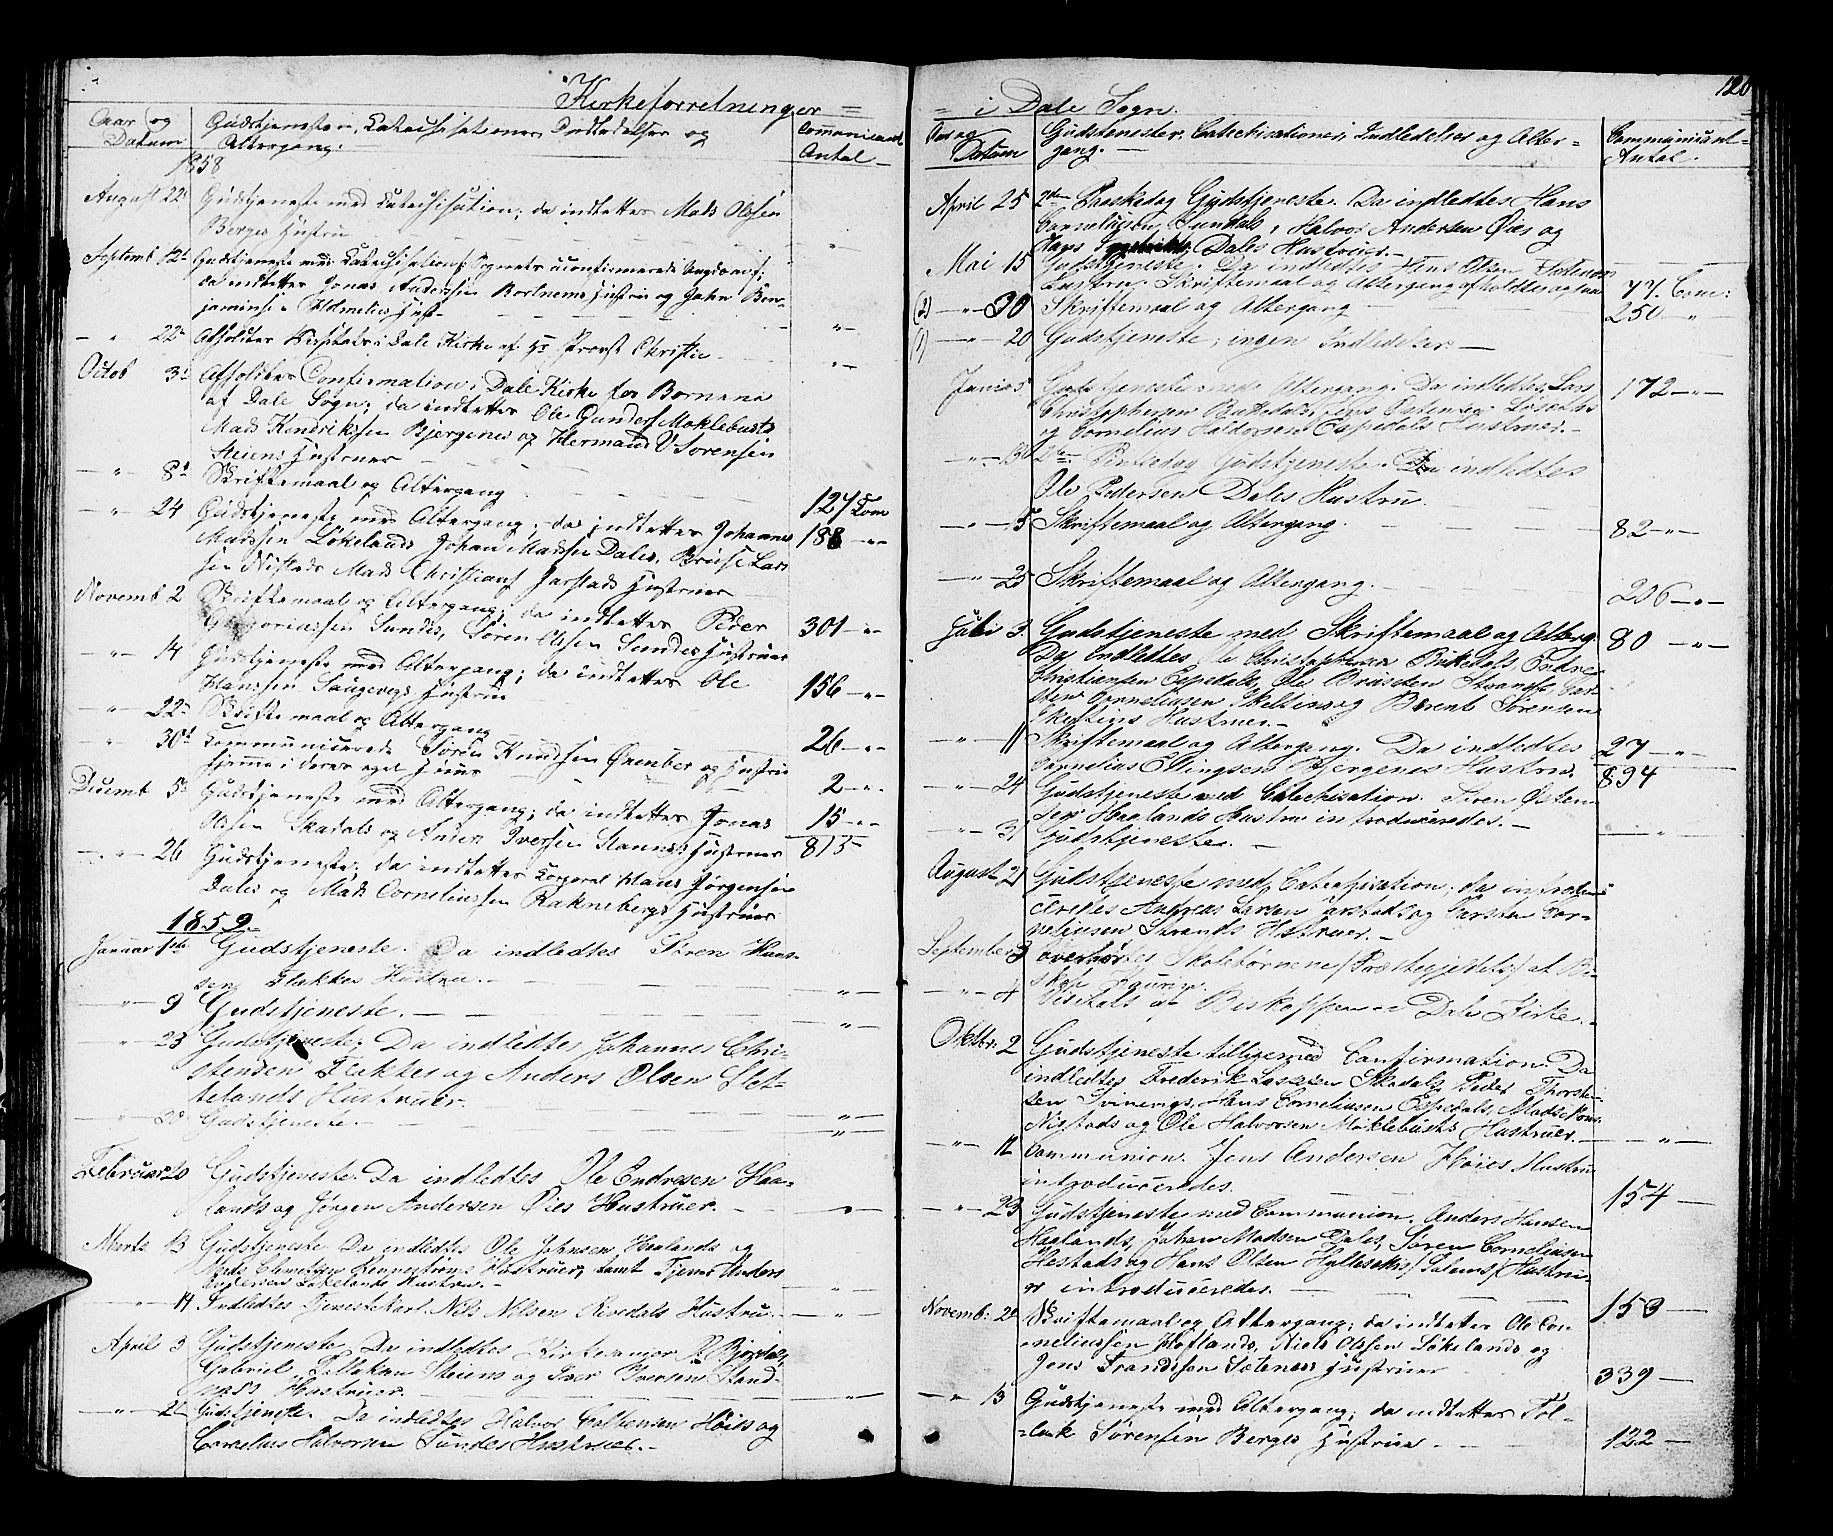 Kirkeforretninger =
Aar og Datum
Gudstjenester, Catechisationer, Indledelser og Altergang.
Communicant Antal
1858
August 22 Gudstjeneste med Catechisation; da indledtes Mads Olsen
Berges Hustru
Septemb 12 Gudstjeneste med Catechisation f. Sognets uconfirmerede Ungdom;
da indledtes Jonas Andersen Bortnems Hustru og John Ben-
jaminsen Holmelies Hust
" 22 Afholdtes Visitats i Dale Kirke af Hr Provst Christie
Octob 3 Afholdtes Confirmation i Dale Kirke for Børnene
af Dale Sogn; da indledtes Ole Gunders Møklebusts
Mads Hendriksen Bjergenes og Herman V Sørensen
Steiens Hustruer
" 8 Skriftemaal og Altergang 127 Com
" 24 Gudstjeneste med Altergang; da indledtes Johannes 188 "
Madssen Løkelands Johan Madssen Dales,
Nistads Mads Christians Jarstads Hustruer
Novemb 2 Skriftemaal og Altergang; da indledtes Peder 301 "
Gregoriussen Sundes, Søren Olsen Sundes Hustruer
" 14 Gudstjeneste med Altergang; da indledtes Ole
Hanssen Haugevegs Hustru 156 "
" 22 Skriftemaal og Altergang 26 "
" 30 Communicerede Søren Knudsen og Hustru
hjemme i deres eget Huus 2 "
Decemb 5 Gudstjeneste med Altergang; da indledtes Jonas 15 "
Olsen Skadals og Anders Iversen Hustruer 815
" 26 Gudstjeneste; da indledtes Korporal Hans Jørgensen
Dales og Mads Corneliussen Raknebergs Hustruer
1859.
Januar 1ste Gudstjeneste. Da indledtes Søren Hans-
sen Flekkes Hustru. "
" 9 Gudstjeneste. "
" 23 Gudstjeneste. Da indledtes Johannes Chri-
stensen Flekkes og Anders Olsen Slet-
telands Hustruer. "
" 30 Gudstjeneste. "
Februar 20 Gudstjeneste. Da indledtes Ole Endresen Haa-
lands og Jørgen Andersen Øies Hustruer. "
Marts 13 Gudstjeneste Da indledtes Ole Johnsen Haalands og
Hustruer, samt Tjener Anders
Løkelands Hustru. "
" 14 Indledtes Tjenestekarl Nils Nilsen Rivedals Hustru. "
April 3 Gudstjeneste. Da indledtes Kirkesanger R Bjordal,
Gabriel Tollaksen Steiens og Iver Iversen Stand-
næss Hustruer. "
" 21 Gudstjeneste. Da indledtes Halvor Høies og
Cornelius Halvorsen Sundes Hustruer.
120
= i Dale Sogn.
Aar og Datum
Gudstenester, Catechisationer, Indledelser og Alter=
gang.
Communicant= Antal.
April 25 2den Paaskedag Gudstjeneste. Da indledtes Hans
Corneliusen Sundals, Halvor Andersen Øies og
Hans Dales Hustruer.
Mai 15 Gudstjeneste. Da indledtes Jens Olsen Sætenæs
Hustru. Skriftemaal og Altergang af 77. Com:
(2) " 30 Skriftemaal og Altergang 250 "
(1) " 20 Gudstjeneste, ingen Indledelser.
Juni 5 Gudstjeneste med Altergang. Da indledtes Lars 172 "
Christophersen Bakkedals, Jens Østensen Løseths
og Cornelius Haldorsen Espedals Hustruer.
" 13 2den Pintsedag Gudstjeneste. Da indledtes
Ole Pedersen Dales Hustru.
" 15 Skriftemaal og Altergang. 82 "
" 25 Skriftemaal og Altergang. 206 "
Juli 3 Gudstjeneste med Skriftemaal og Alterg. 80 "
Da indledtes Ole Christophersen Birkedals, Endre
Christiansen Espedals, Ole Strands, Car-
sten Corneliusen Skeltins og Berent Sørensen
Hustruer.
" 11 Skriftemaal og Altergang. Da indledtes 27 "
Cornelius Ellingsen Bjergenes Hustru. 894
" 24 Gudstjeneste med Catechisation. Søren Østen-
sen Haalands Hustru introduceredes.
" 31 Gudstjeneste. "
August 21 Gudstjeneste med Catechisation; da introdu-
ceredes Andreas Larsen Jarstads og Carsten Cor-
neliusen Strands Hustruer.
September 3 Overhørtes Skolebørnene /Præstegjeldets/ af Bi-
skop Kaurin.
" 4 Visitats af Biskoppen i Dale Kirke.
Oktbr. 2 Gudstjeneste tilligemed Confirmation. Da
indledtes Frederik Lassesen Skadals, Peder Thorste-
sen Svinevigs, Hans Corneliusen Espedals, Mads
Nistads og Ole Halvorsen Møklebusts Hustruer. "
" 12 Communion. Jens Andersen Høies Hustru
introduceredes. 154
" 23 Gudstjeneste med Communion. Anders Hansen
Haalands, Johan Madsen Dales, Søren Corneliusen
Hestads og Hans Olsen Hyllesets /Salens/ Hustru-
er introduceredes. 153
Novemb: 2 Skriftemaal og Altergang; da indledtes Ole Cor-
neliussen Hoflands, Niels Olsen Løkelands og
Jens Frandssen Sætenæss Hustruer 339
" 13 Gudstjeneste med Altergang; da indledtes Tol-
lak Sørensen Berges Hustru 122